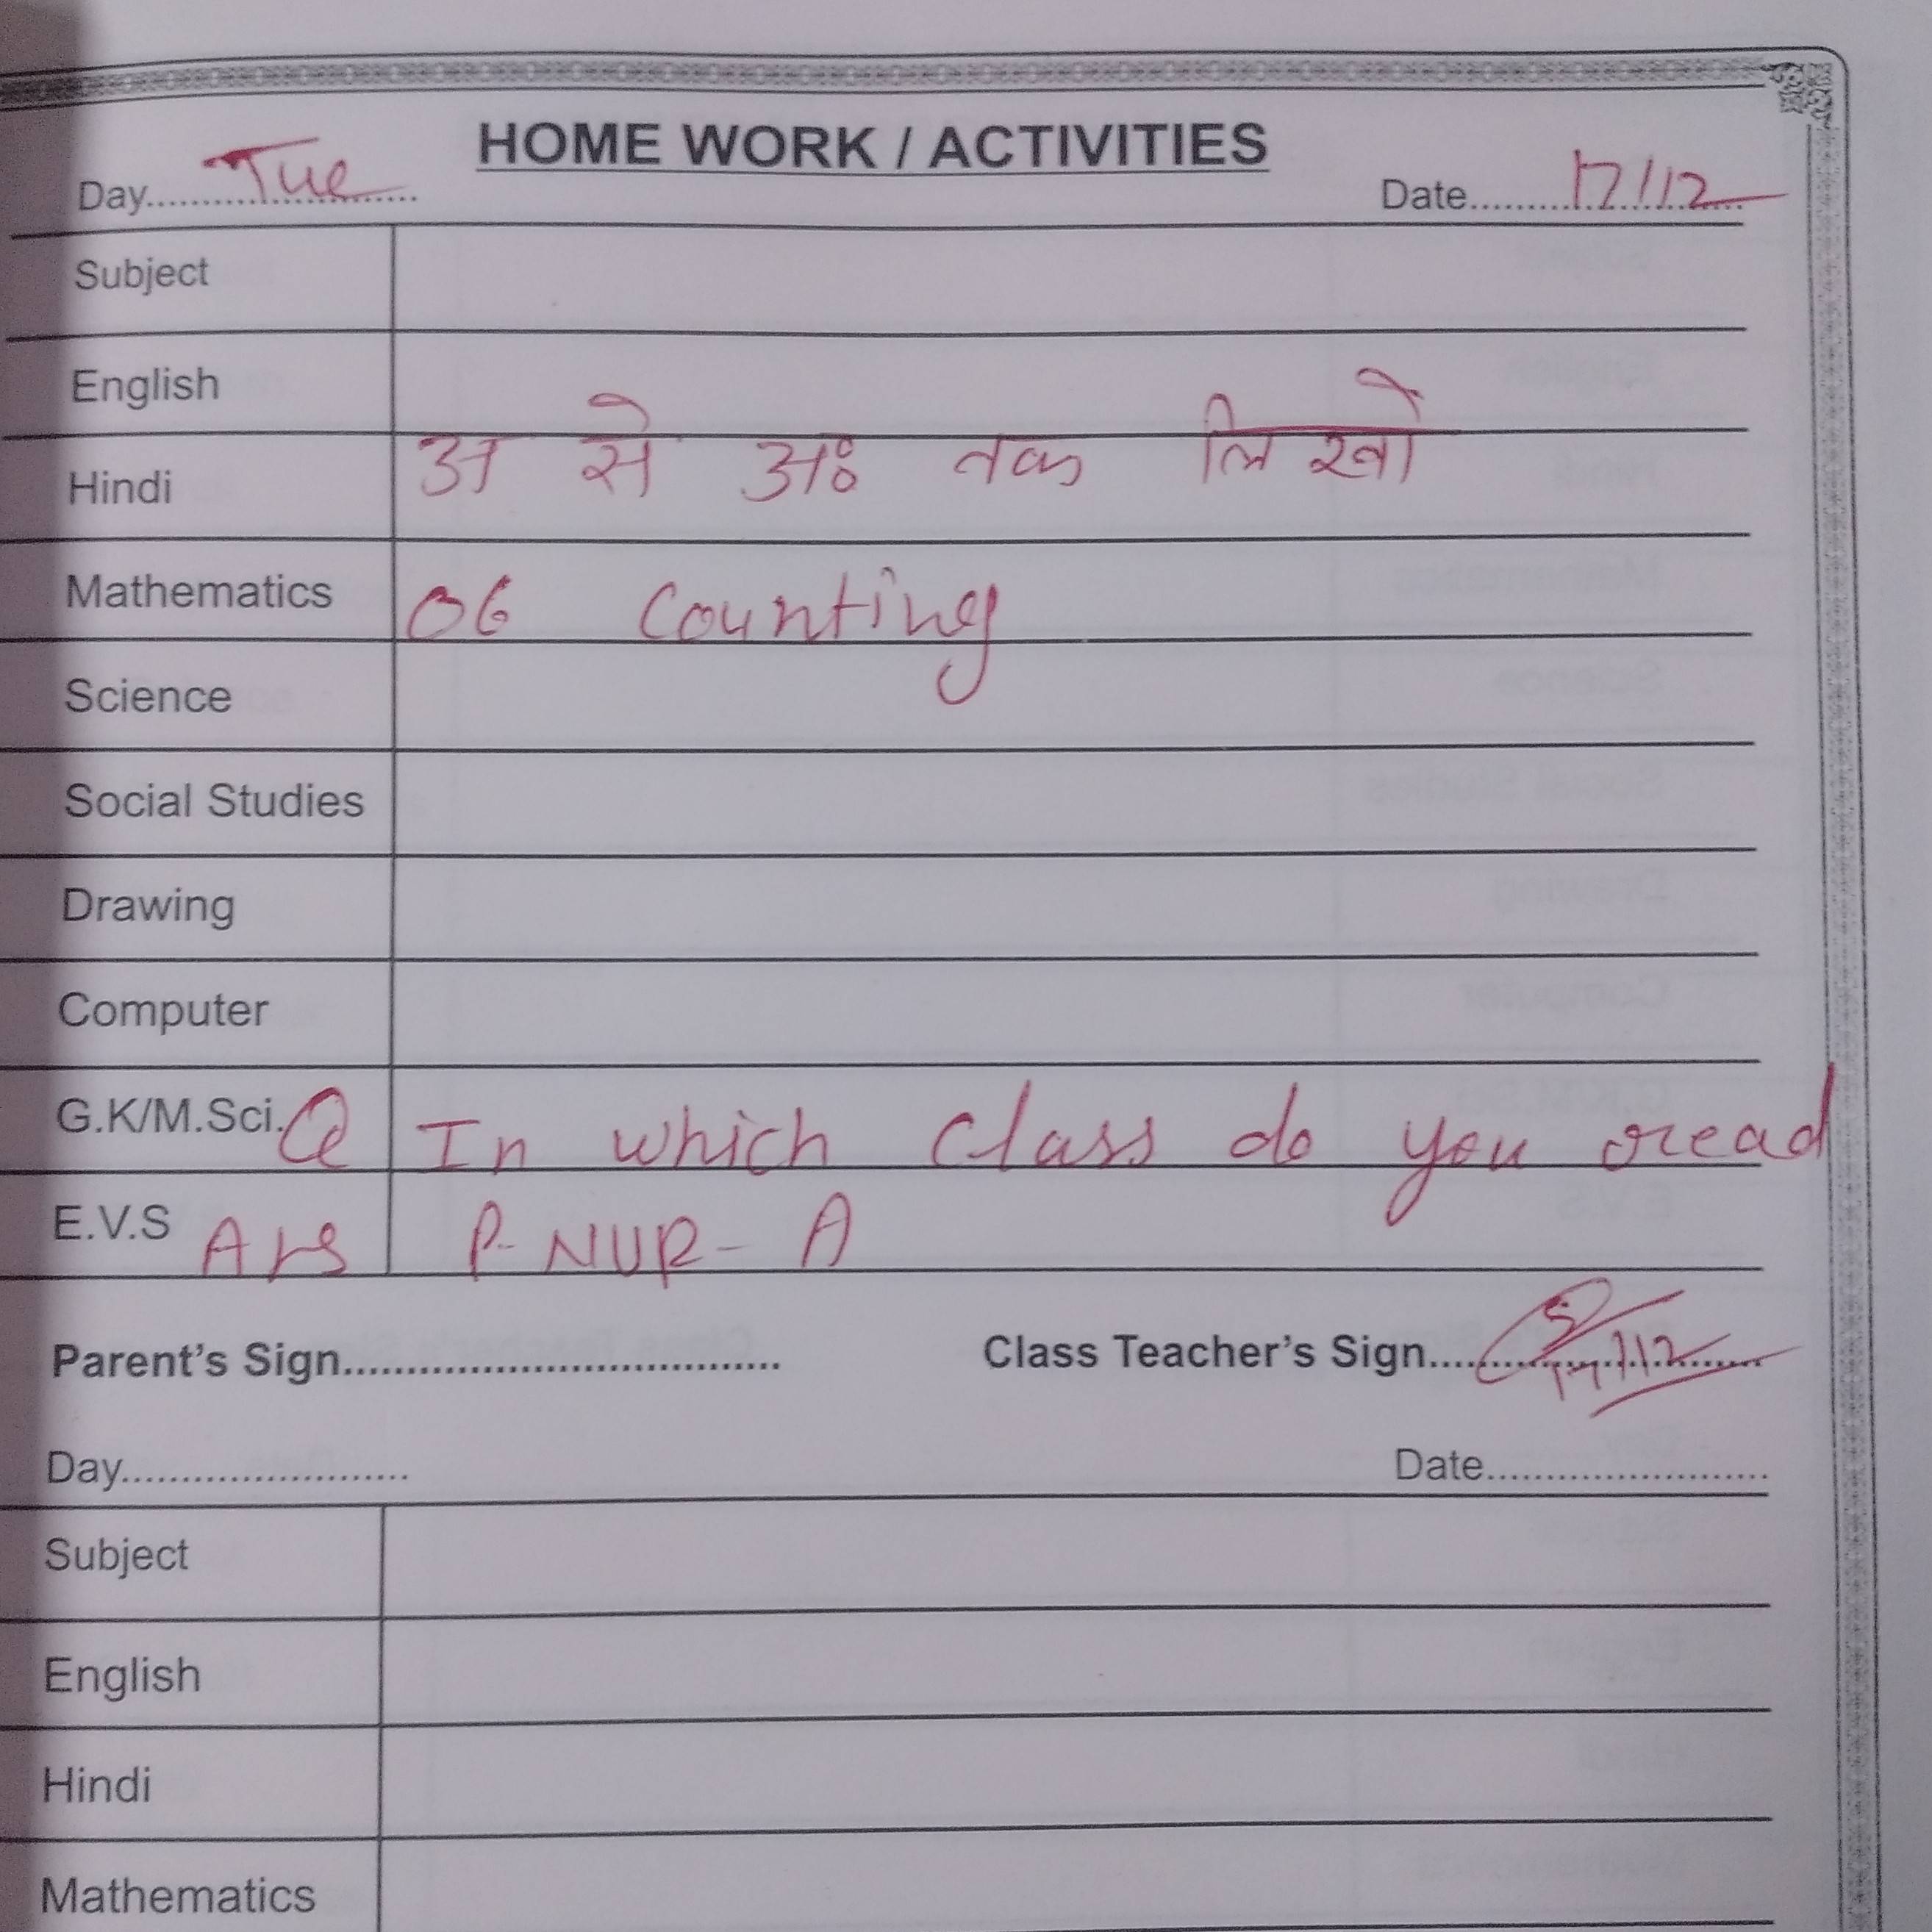 HOME WORK / ACTIVITIES
Day........Tue........ Date........17/12........
Subject
English
Hindi अ से अः तक लिखो
Mathematics 06 Counting
Science
Social Studies
Drawing
Computer
G.K/M.Sci. Q In which class do you read
E.V.S Ans P-NUR-A
Parent's Sign.................................. Class Teacher's Sign.... 17/12
Day........................ Date........................
Subject
English
Hindi
Mathematics